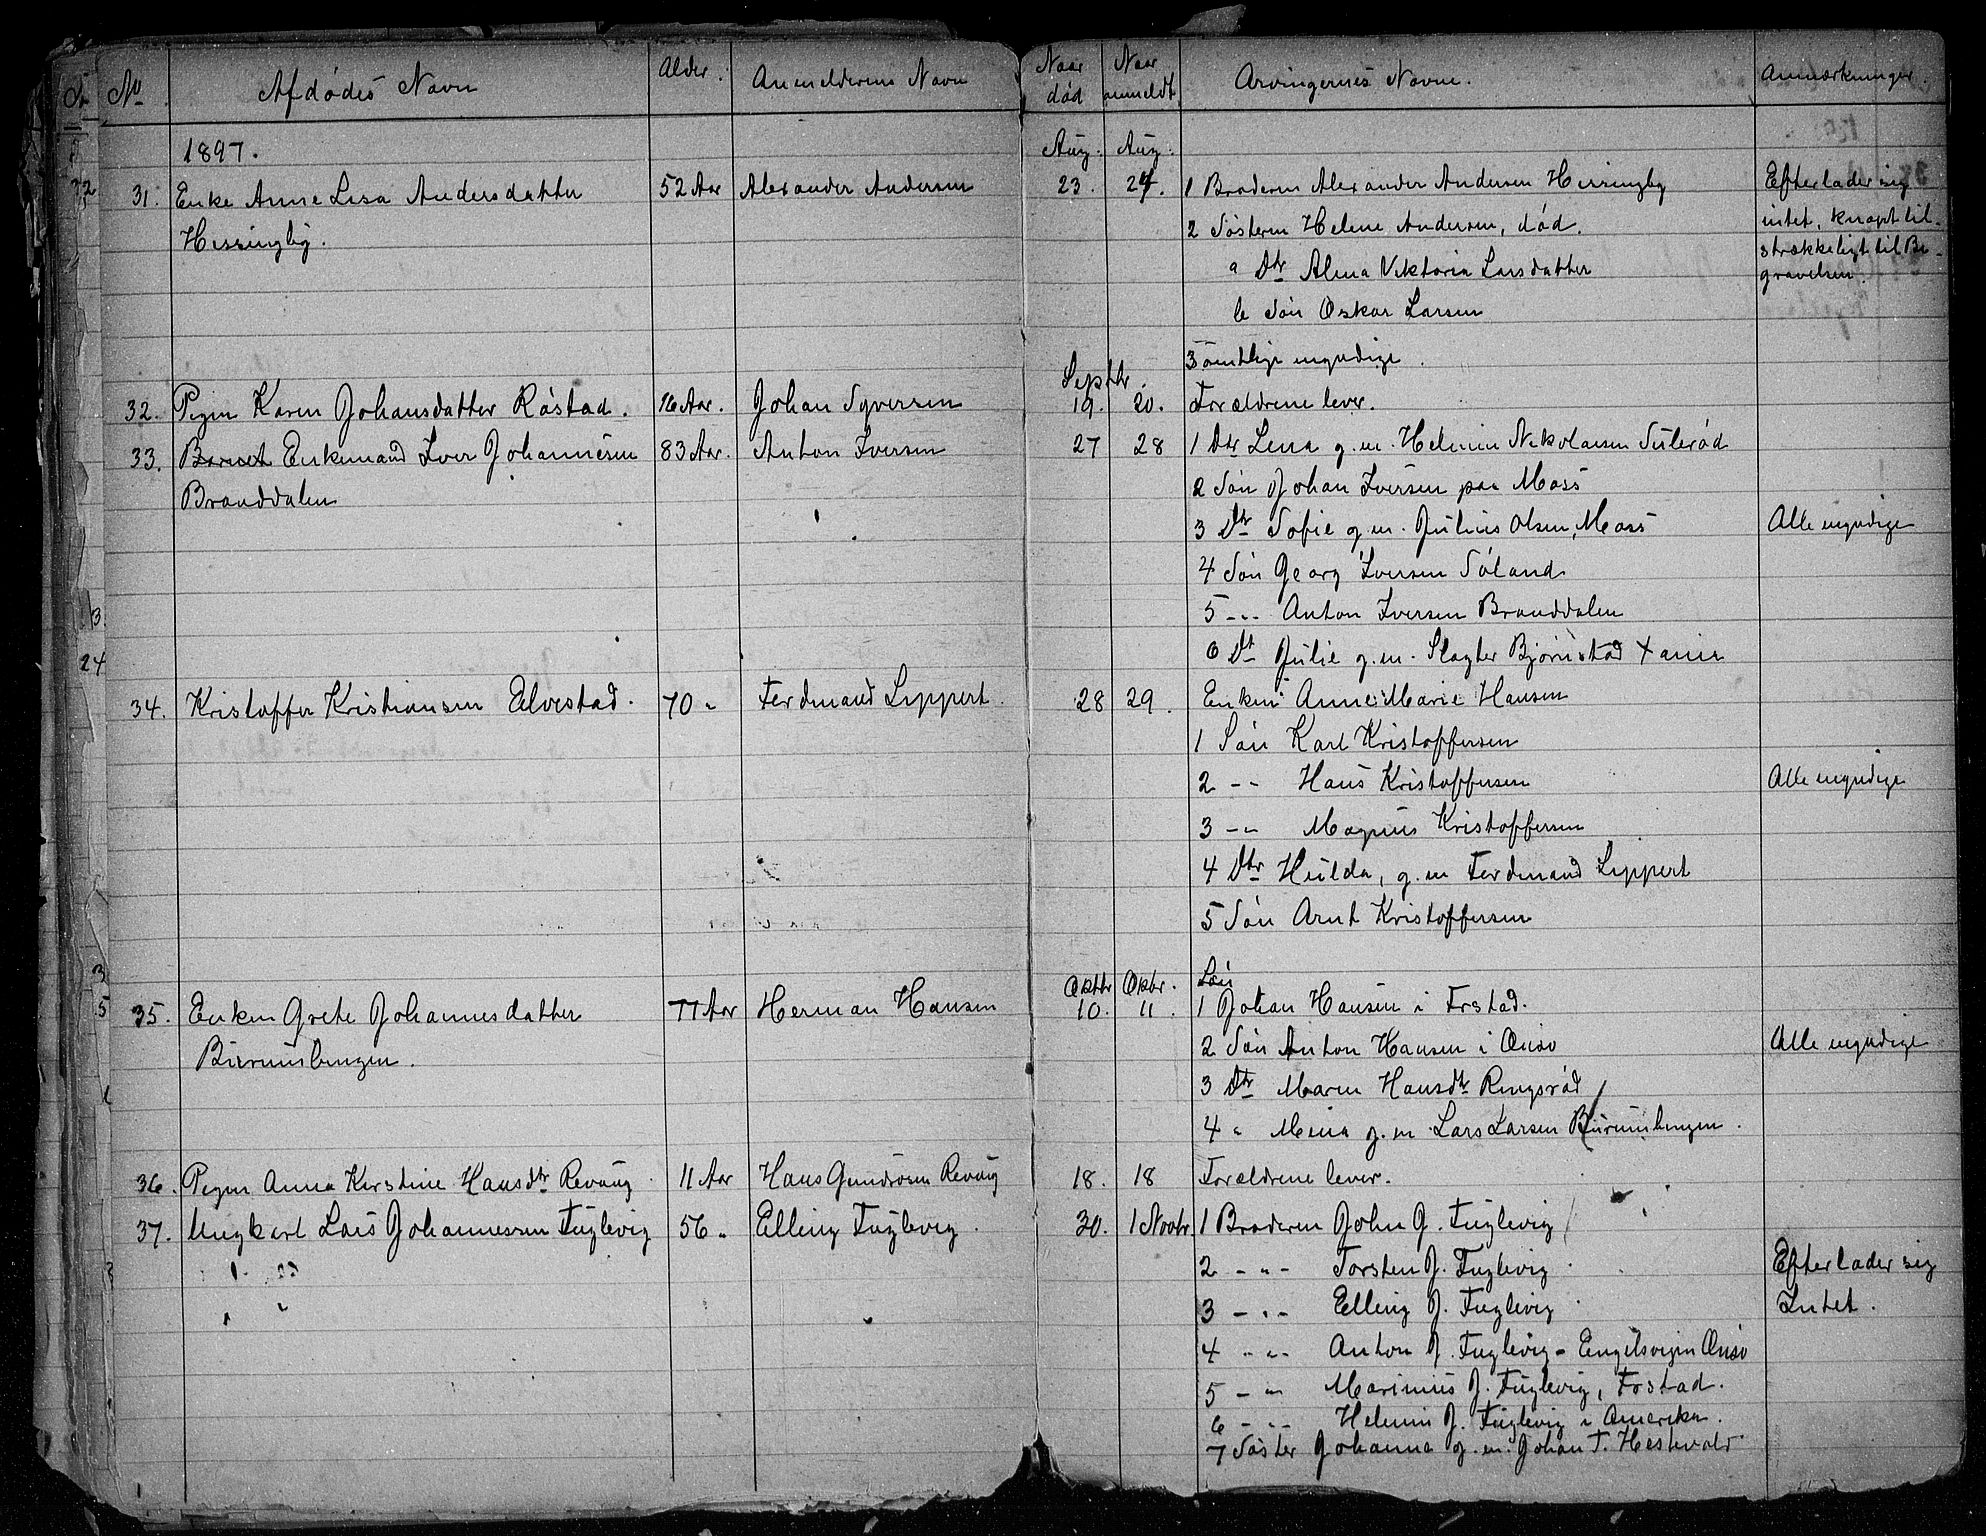 No Afdødes Navn Alder. Anmelderens Navn Naar død Naar anmeldt Arvingernes Navne. Anmærkninger.
1897. Aug. Aug.
31. Enke Anne Lisa Andersdatter 52 Aar Alexander Andersen 23. 24. 1 Broderen Alexander Andersen Herringby Efterlader sig
Herringby. 2 Søsteren Helene Andersen, død. intet, knapt til-
a Dtr Alma Viktoria Larsdatter strækkeligt til Be-
b Søn Oskar Larsen gravelsen.
Septbr. Samtlige myndige.
32. Pigen Karen Johansdatter Råstad. 16 Aar. Johan Syversen 19. 20. Forældrene lever.
33. Barnet Enkemand Iver Johannesen 83 Aar. Anton Iversen 27 28 1 Dtr Lena g.m. Helmin Nikolaisen
Branddalen 2 Søn Johan Iversen paa Moss
3 Dtr Sofie g.m. Julius Olsen, Moss Alle myndige
4 Søn Georg Iversen Søland
5 -"- Anton Iversen Branddalen
6 Dt Julie g.m. Slagter Bjørnstad Xania
34. Kristoffer Kristiansen Elvestad. 70 " Ferdinand Lippert. 28 29. Enken Anne Marie Hansen
1 Søn Karl Kristoffersen
2 -"- Hans Kristoffersen Alle myndige
3 -"- Magnus Kristoffersen
4 Dtr Hulda, g.m Ferdinand Lippert
5 Søn Arnt Kristoffersen
Oktbr Oktbr. Søn
35. Enken Grete Johannesdatter 77 Aar Herman Hansen 10. 11. 1 Johan Hansen i Frstad.
2 Søn Anton Hansen i Onsø Alle myndige
3 Dtr Maren Hansdtr Ringsrød
4 " Mina g.m. Lars Larsen
36. Pigen Anna Kirstine Hansdtr Revaug 11 Aar Hans Gundrosen Revaug 18. 18 Forældrene lever.
37. Ungkarl Lars Johannessen Fuglevig 56 " Elling Fuglevig. 30. 1 Novbr. 1 Broderen John J. Fuglevig
2 -"- Torsten J. Fuglevig Efterlader sig
3 -"- Elling J. Fuglevig Intet.
4 -"- Anton J. Fuglevig - Engelsvigen Onsø
5 -"- Marinius J. Fuglevig, Frstad.
6 -"- Helmin J. Fuglevig i Amerika.
7 Søster Johanna g.m. Johan T. Hestevold